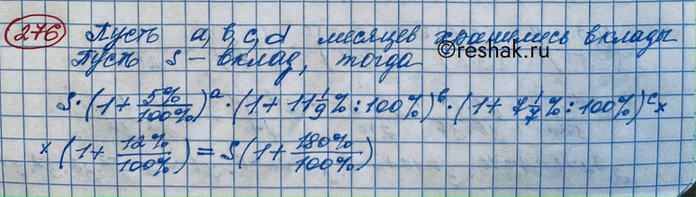 276 Пусть a, b, c, d месяцев хранились вклады
©reshak.ru
Пусть S – вклад, тогда
S·(1+5%/100%)^a·(1+11 1/9%:100%)^b·(1+7 1/7%:100%)^c×
×(1+12%/100%)=S(1+180%/100%)